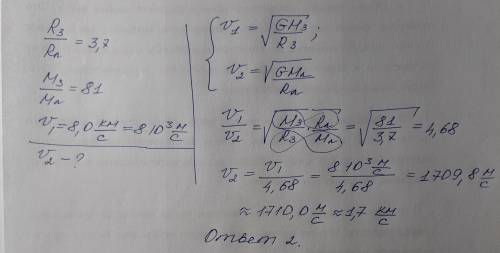 R₃/Rл = 3,7
M₃/Mл = 81
v₁ = 8,0 км/с = 8·10³ м/с
v₂ - ?
{ v₁ = √(GM₃/R₃) ;
v₂ = √(GMл/Rл)
v₁/v₂ = √(M₃/R₃ · Rл/Mл) = √(81/3,7) = 4,68
v₂ = v₁/4,68 = 8·10³ м/с / 4,68 = 1709,8 м/с
≈ 1710,0 м/с ≈ 1,7 км/с
Ответ 2.